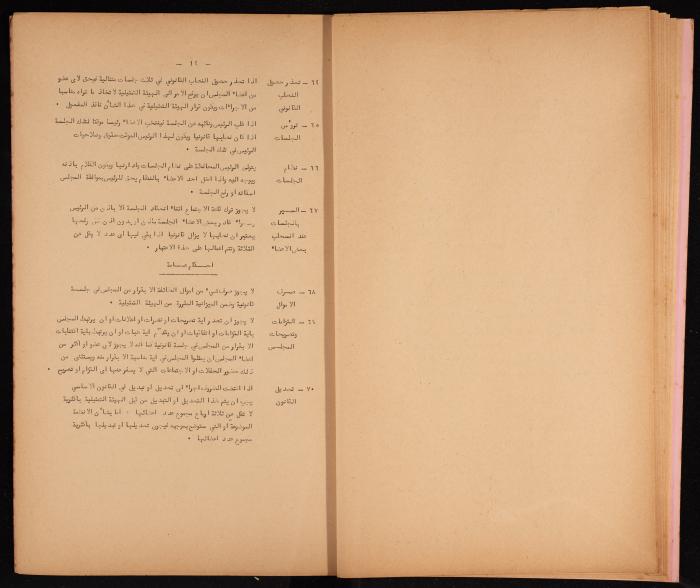 – ١٤ –
٦٤ – تعذر حصول النصاب القانوني
اذا تعذر حصول النصاب القانوني في ثلاث جلسات متتالية فيحق لاي عضو
من اعضاء المجلس ان يرفع الامر الى الهيئة التمثيلية لاتخاذ ما تراه مناسبا
من الاجراءات ويكون قرار الهيئة التمثيلية في هذا الشأن نافذ المفعول .
٦٥ – ترؤس الجلسات
اذا غاب الرئيس ونائبه عن الجلسة فينتخب الاعضاء رئيسا مؤقتا لتلك الجلسة
اذا كان نصابها قانونيا ويكون لهذا الرئيس المؤقت حقوق وصلاحيات
الرئيس في تلك الجلسة .
٦٦ – نظام الجلسات
يتولى الرئيس المحافظة على نظام الجلسات وادارتها ويكون الكلام باذنه
ويوجه اليه واذا اخل احد الاعضاء بالنظام يحق للرئيس بموافقة المجلس
اسكاته او رفع الجلسة .
٦٧ – السير بالجلسات عند انسحاب بعض الاعضاء
لا يجوز ترك قاعة الاجتماع اثناء انعقاد الجلسة الا باذن من الرئيس
غادر بعض الاعضاء الجلسة باذن او بدون اذن
يعتبر ان نصابها لا يزال قانونيا اذا بقي فيها اي عدد لا يقل عن
الثلاثة وتتم اعمالها على هذا الاعتبار .
احكام عامة
٦٨ – صرف الاموال
لا يجوز صرف شيء من اموال الطائفة الا بقرار من المجلس في جلسة
قانونية وضمن الميزانية المقررة من الهيئة التمثيلية .
٦٩ – التزامات وتصريحات المجلس
لا يجوز ان تصدر اية تصريحات او نشرات او اعلانات او ان يرتبط المجلس
باية التزامات او اتفاقيات او ان يقدم اية هبات او ان يرتبط باية انتخابات
الا بقرار من المجلس في جلسة قانونية كما انه لا يجوز لاي عضو او اكثر من
اعضاء المجلس ان يمثلوا المجلس في اية مناسبة الا بقرار منه ويستثنى من
ذلك حضور الحفلات او الاجتماعات التي لا يسفر عنها اي التزام او تصريح .
٧٠ – تعديل القانون
اذا اقتضت الظروف اجراء اي تعديل او تبديل في القانون الاساسي
يجب ان يتم هذا التعديل او التبديل من قبل الهيئة التمثيلية باكثرية
لا تقل عن ثلاثة ارباع مجموع عدد اعضائها . اما بشأن الانظمة
الموضوعة او التي ستوضع بموجبه فيجوز تعديلها او تبديلها باكثرية
مجموع عدد اعضائها .